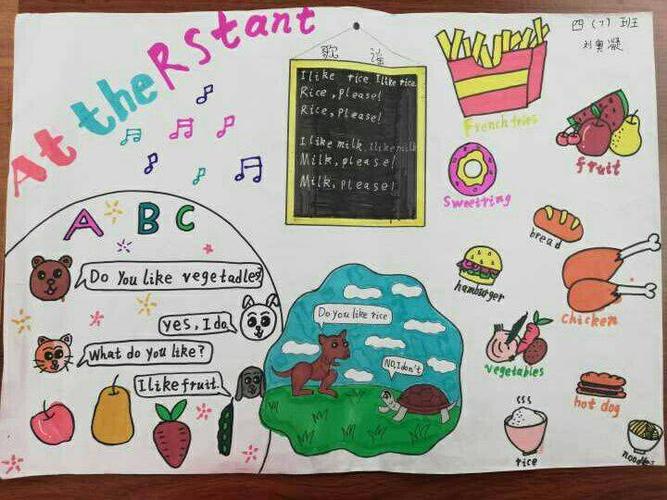 At the RStant
四（7）班
刘奥凝
歌 谣
I like rice, I like rice.
Rice, please!
Rice, please!
I like milk, I like milk
Milk, please!
Milk, please!
French fries
fruit
Sweetring
bread
hamburger
chicken
vegetables
hot dog
rice
noodles
A B C
Do You like vegetadles?
yes, I do.
What do you like?
I like fruit.
Do you like rice
NO, I don't